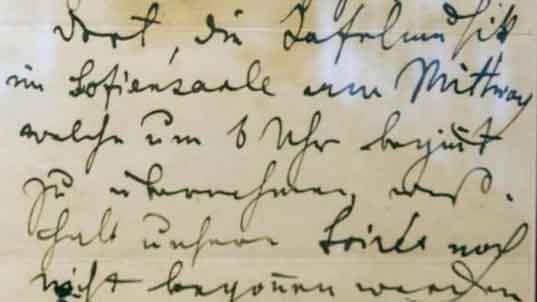 dort, die Tafelmusik
im Sofiensaale am Mittwoch
welche um 6 Uhr beginnt
zu übernehmen, wess-
halb unsere Soirée noch
nicht begonnen werden